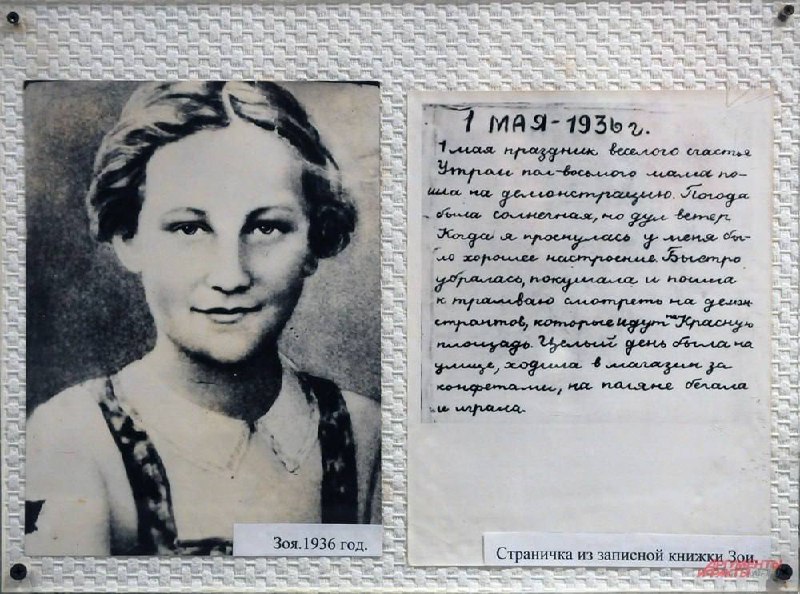 1 МАЯ - 1936 г.
1 мая праздник веселого счастья
Утром пол-восьмого мама по-
шла на демонстрацию. Погода
была солнечная, но дул ветер
Когда я проснулась у меня бы-
ло хорошее настроение. Быстро
убралась, покушала и пошла
к трамваю смотреть на демон
странтов, которые идут на Красную
площадь. Целый день была на
улице, ходила в магазин за
конфетами, на паляне бегала
и играла.
Зоя.1936 год.
Страничка из записной книжки Зои.
АРГУМЕНТЫ
И ФАКТЫ